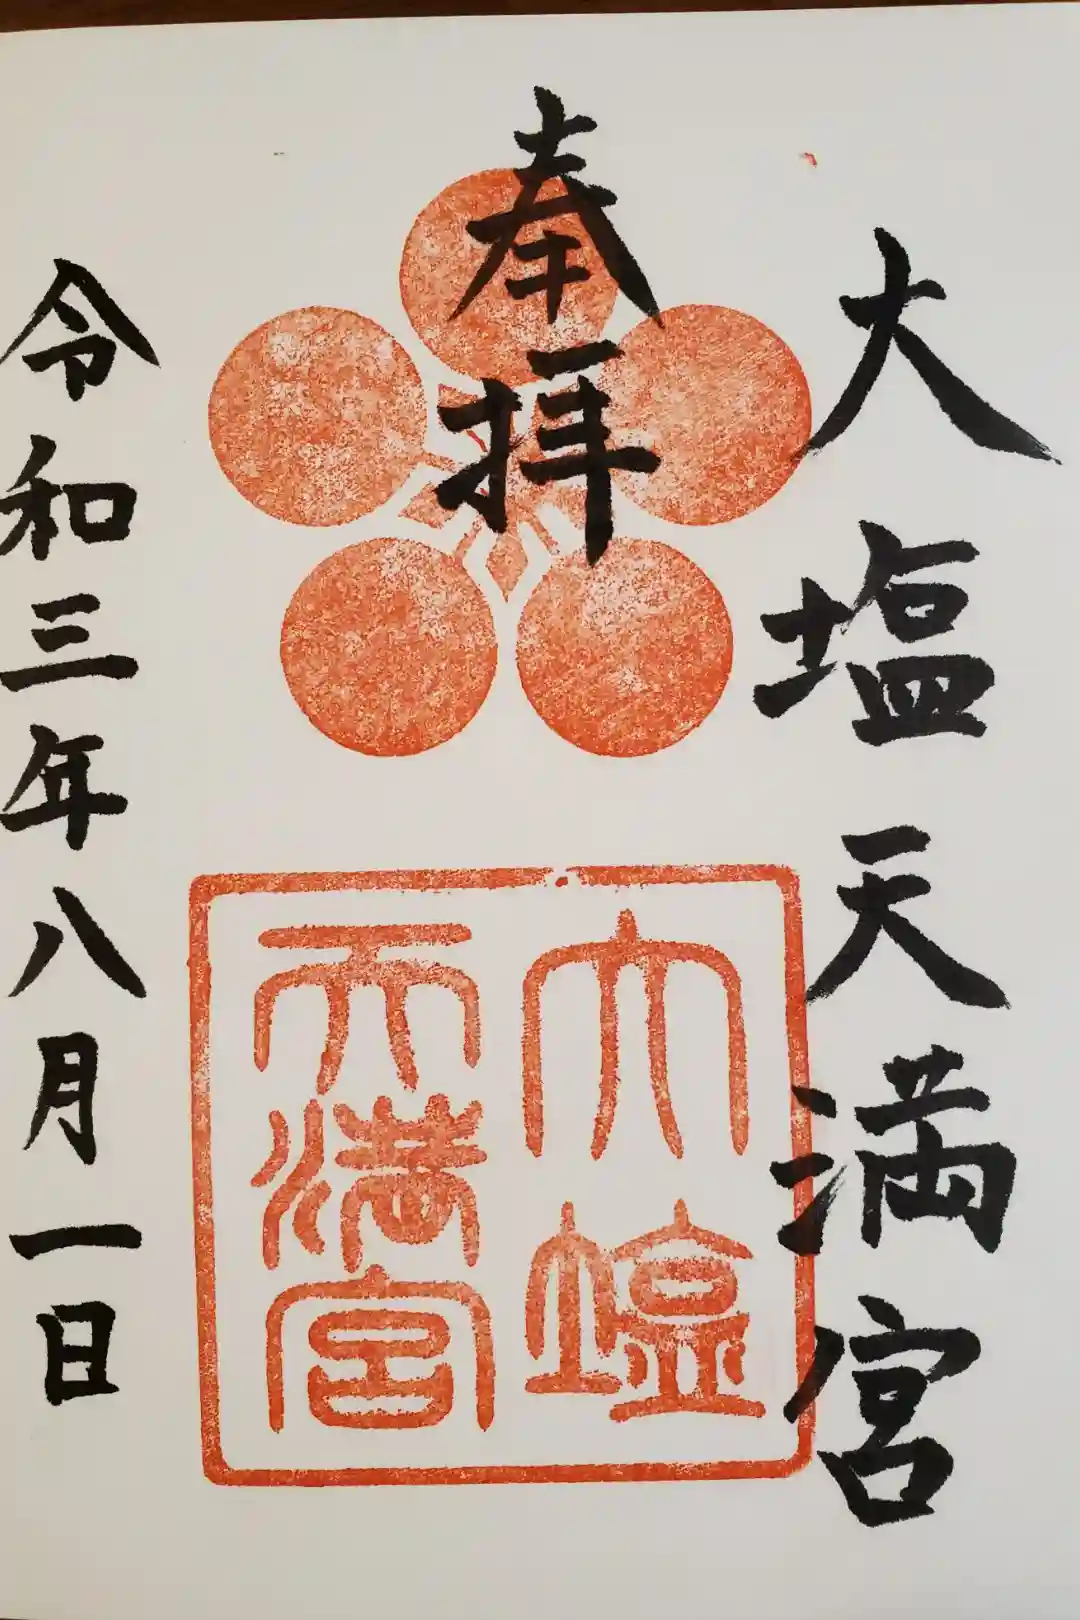 大塩天満宮
奉拝
大塩
天満宮
令和三年八月一日